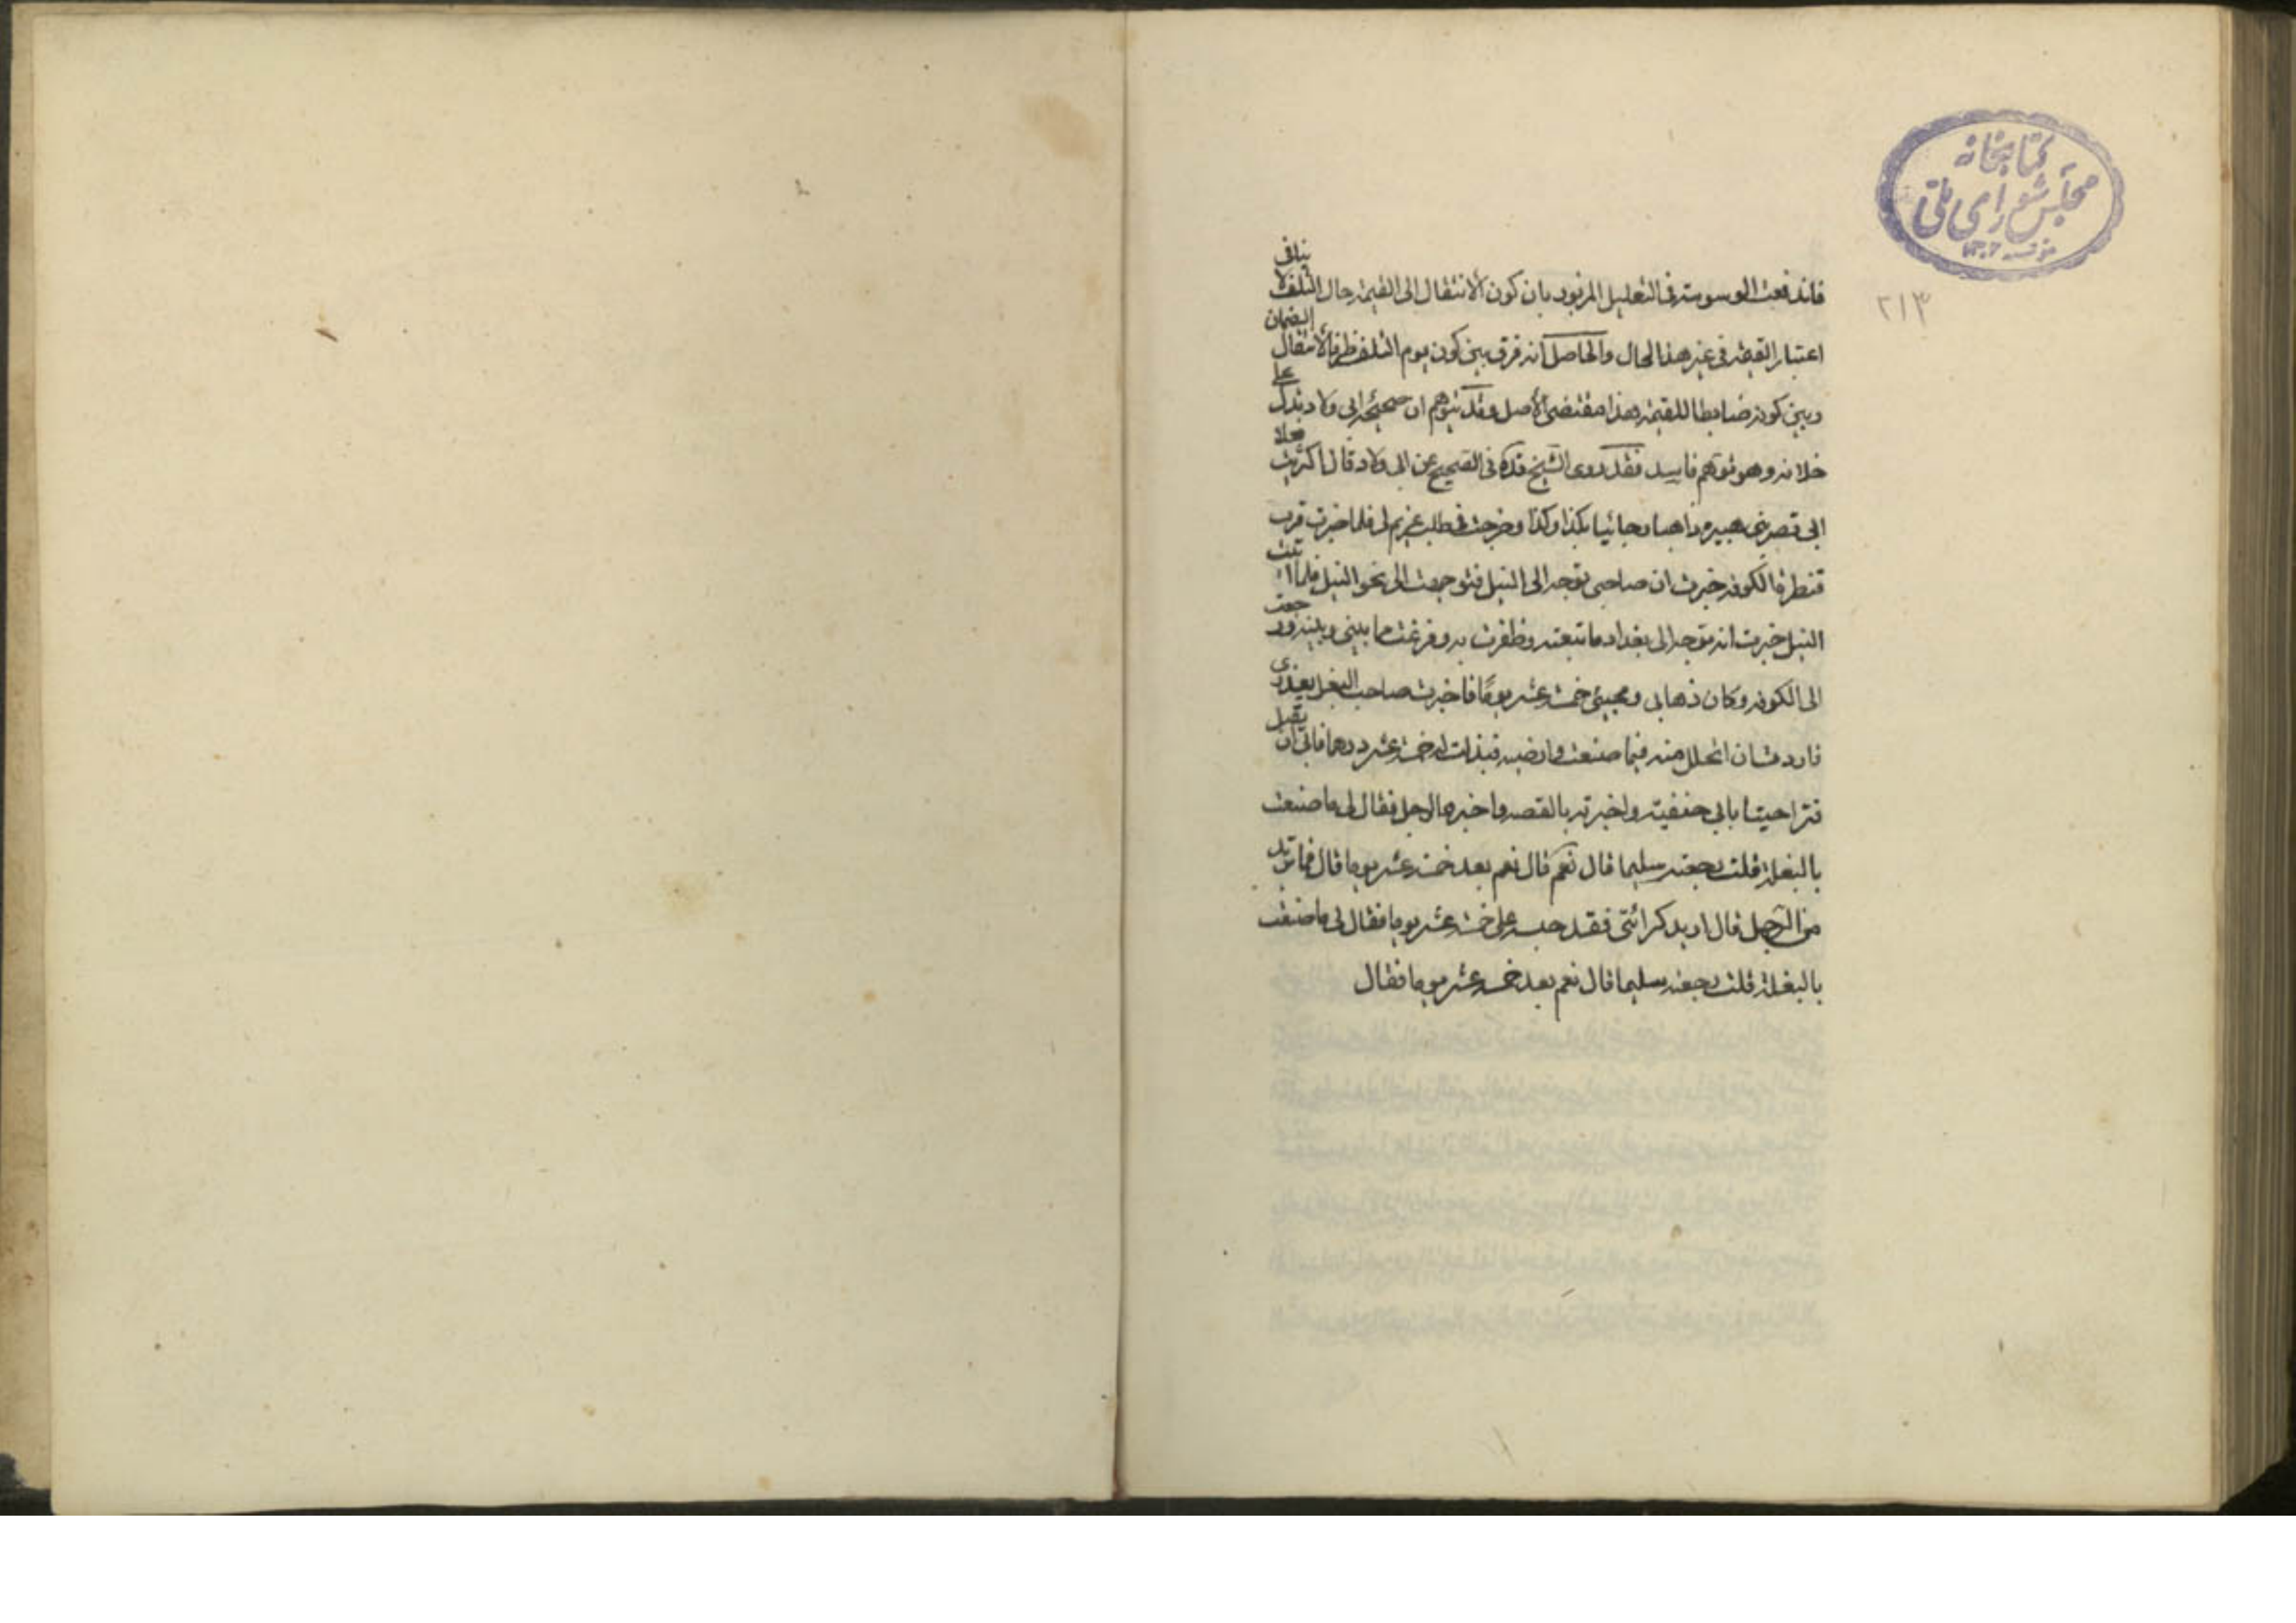 كتابخانه
مجلس شورای ملی
٢١٣
فاندفعت الوسوسة في التعليل المزبور بان كون الانتقال الى القيمة حال التلف لا ينافي
اعتبار القيمة في غير هذا الحال والحاصل انه فرق بين كون يوم التلف ظرفا لانتقال الضمان
وبين كونه ضابطا للقيمة هذا مقتضى الاصل وقد يتوهم ان صحيحة ابي ولاد تدل على
خلافه وهو توهم فاسد فقد روى الشيخ قده في الصحيح عن ابي ولاد قال اكتريت بغلا
الى قصر بني هبيرة ذاهبا وجائيا بكذا وكذا وخرجت في طلب غريم لي فلما خبرت قرب
قنطرة الكوفة خبرت ان صاحبي توجه الى النيل فتوجهت الى نحو النيل فلما اتيت
النيل خبرت انه توجه الى بغداد فاتبعته وظفرت به وفرغت مما بيني وبينه ورجعت
الى الكوفة وكان ذهابي ومجيئي خمسة عشر يوما فاخبرت صاحب البغل بعذري
فاردت ان اتحلل منه فيما صنعت وارضيه فبذلت له خمسة عشر درهما فابى ان يقبل
فتراضينا بابي حنيفة واخبرته بالقصة واخبره الرجل فقال لي ما صنعت
بالبغلة قلت رجعته سليما قال نعم قال نعم بعد خمسة عشر يوما قال فما تريد
من الرجل قال اريد كرائتي فقد حبسه على خمسة عشر يوما فقال لي ما صنعت
بالبغلة قلت رجعته سليما قال نعم بعد خمسة عشر يوما فقال